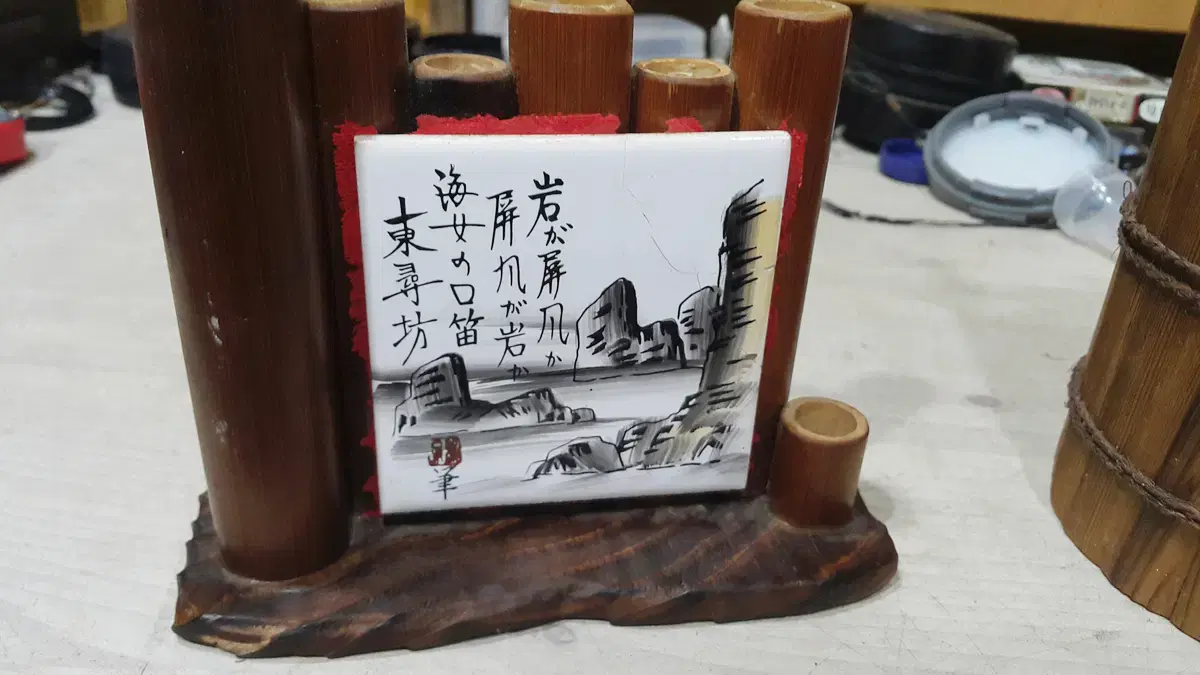 岩が屏風か
屏風が岩か
海女の口笛
東尋坊
筆